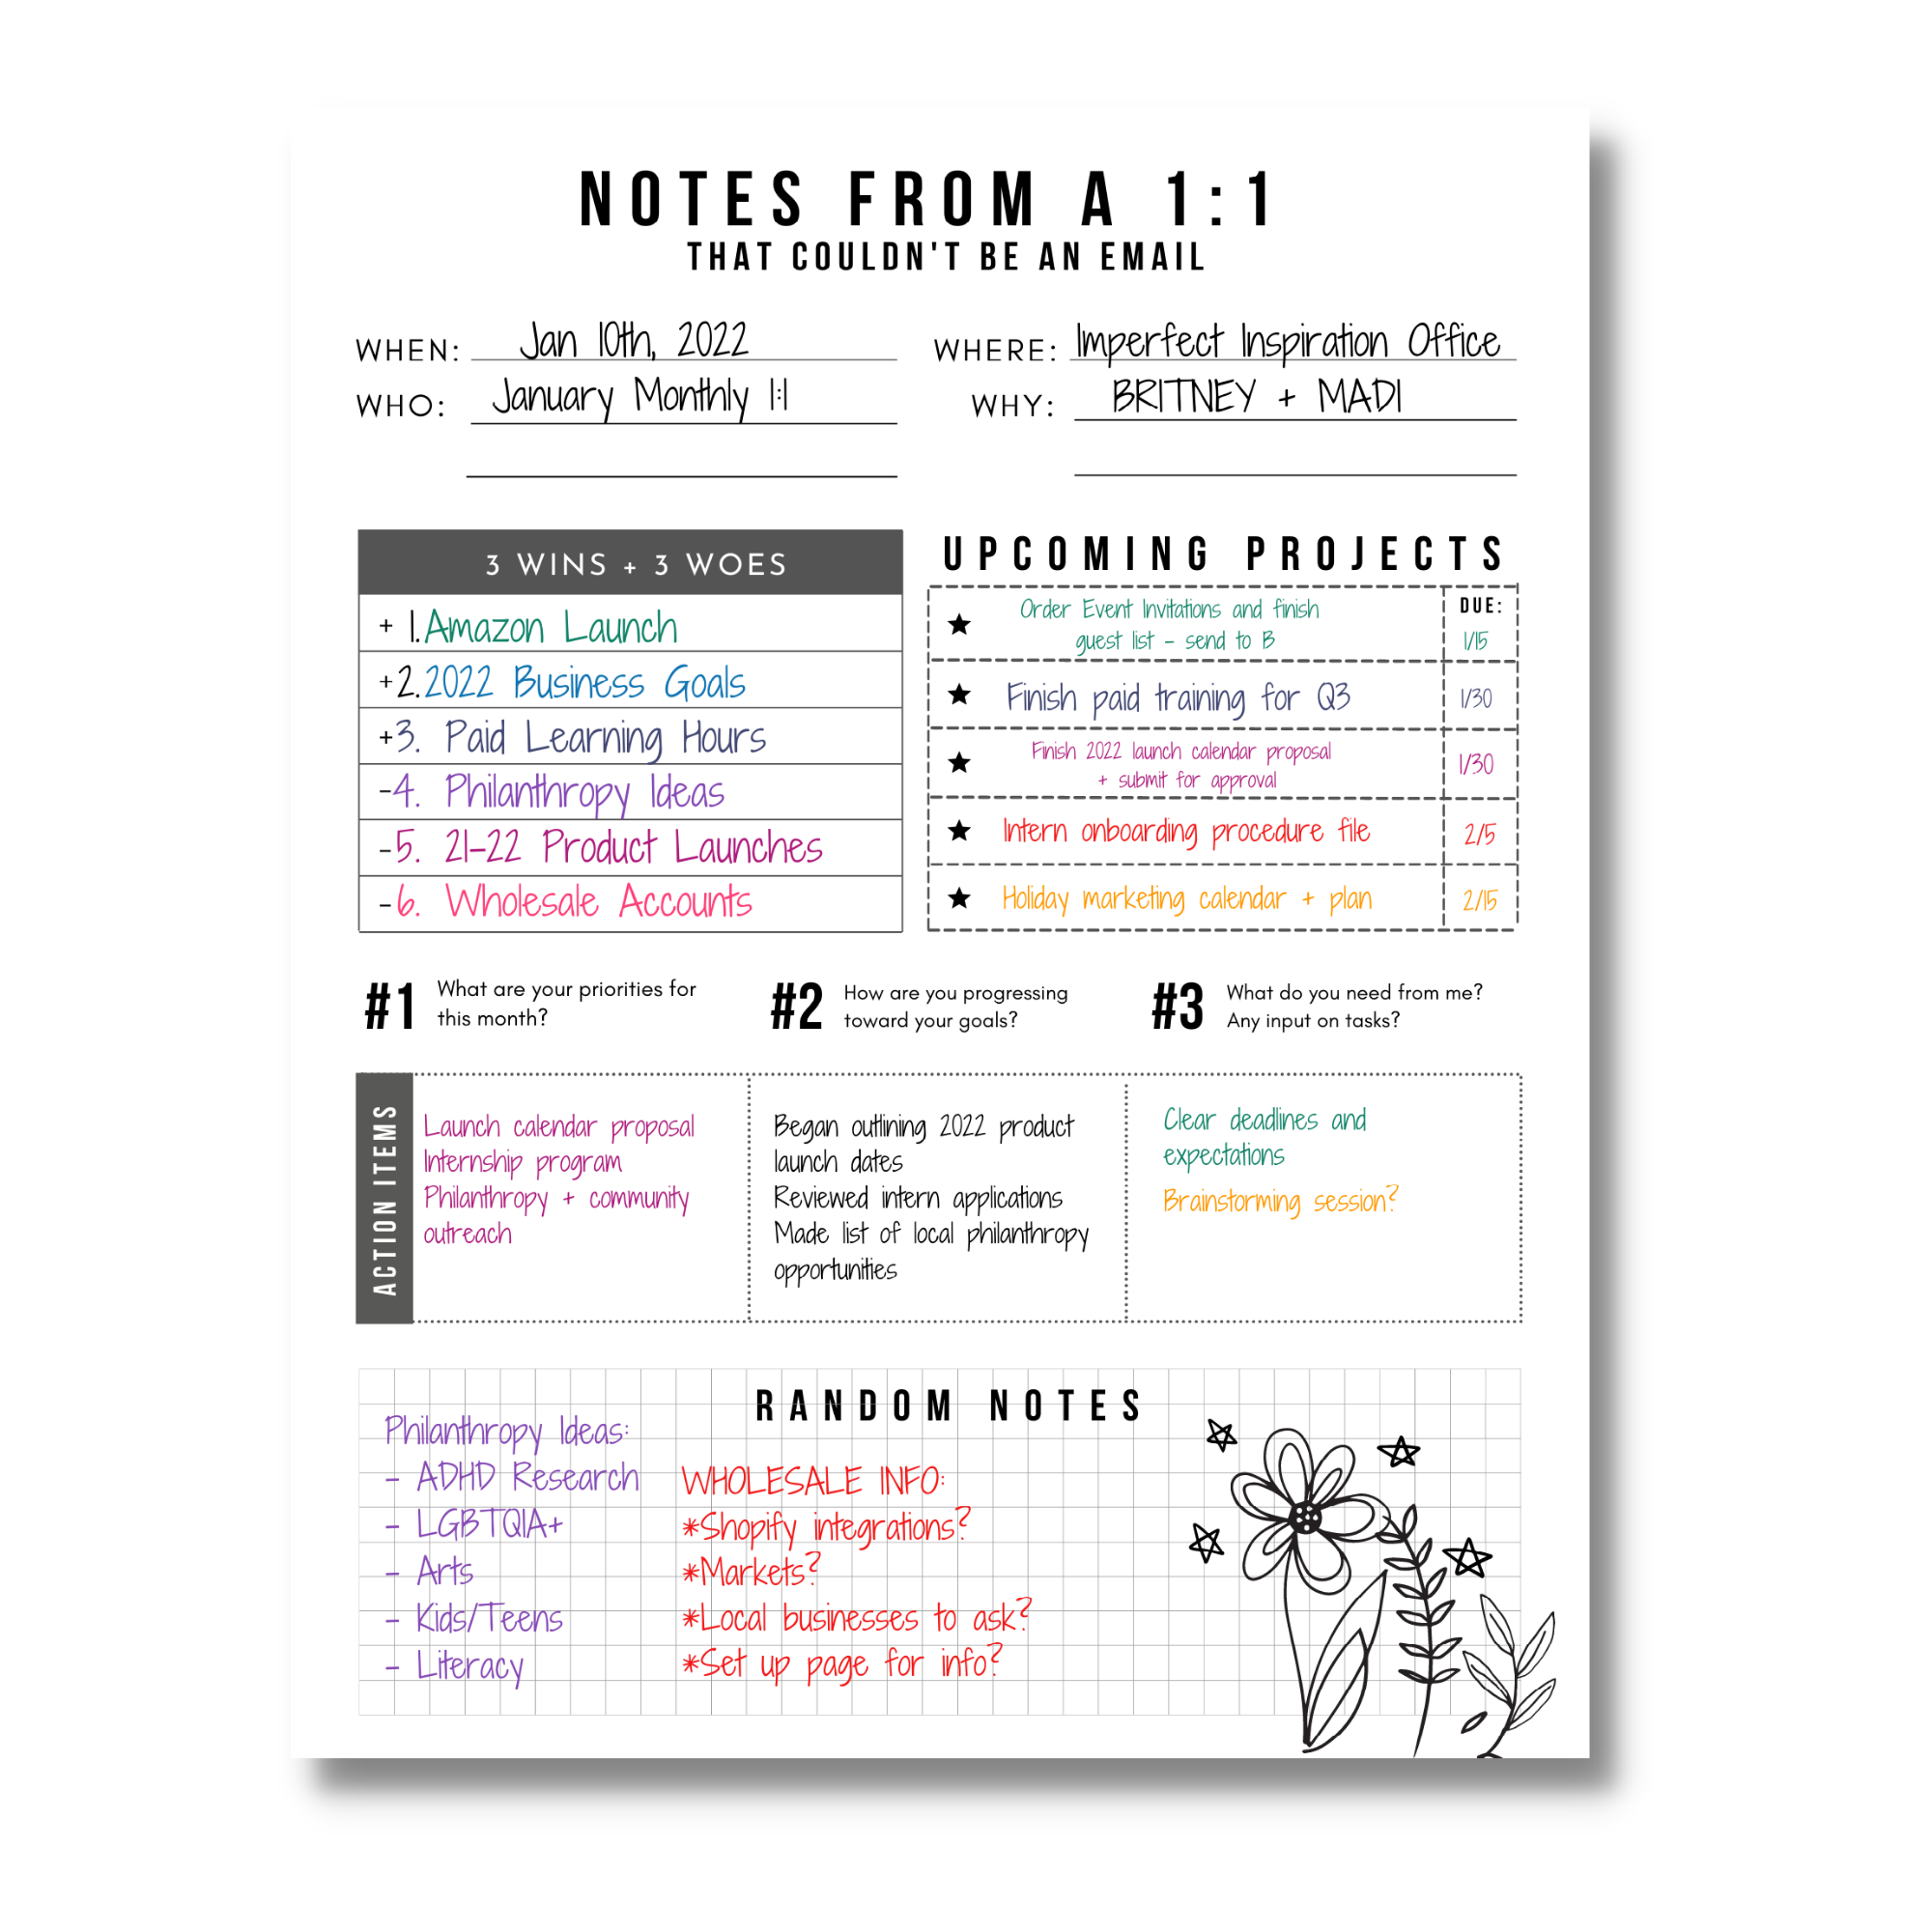 NOTES FROM A 1:1
THAT COULDN'T BE AN EMAIL
WHEN: Jan 10th, 2022
WHERE: Imperfect Inspiration Office
WHO: January Monthly 1:1
WHY: BRITNEY + MADI
3 WINS + 3 WOES
+ 1. Amazon Launch
+2. 2022 Business Goals
+3. Paid Learning Hours
-4. Philanthropy Ideas
-5. 21-22 Product Launches
-6. Wholesale Accounts
UPCOMING PROJECTS
DUE:
Order Event Invitations and finish
guest list - send to B
1/15
Finish paid training for Q3 1/30
Finish 2022 launch calendar proposal
+ submit for approval
1/30
Intern onboarding procedure file 2/5
Holiday marketing calendar + plan 2/15
#1 What are your priorities for
this month?
#2 How are you progressing
toward your goals?
#3 What do you need from me?
Any input on tasks?
ACTION ITEMS
Launch calendar proposal
Internship program
Philanthropy + community
outreach
Began outlining 2022 product
launch dates
Reviewed intern applications
Made list of local philanthropy
opportunities
Clear deadlines and
expectations
Brainstorming session?
RANDOM NOTES
Philanthropy Ideas:
- ADHD Research
- LGBTQIA+
- Arts
- Kids/Teens
- Literacy
WHOLESALE INFO:
*Shopify integrations?
*Markets?
*Local businesses to ask?
*Set up page for info?